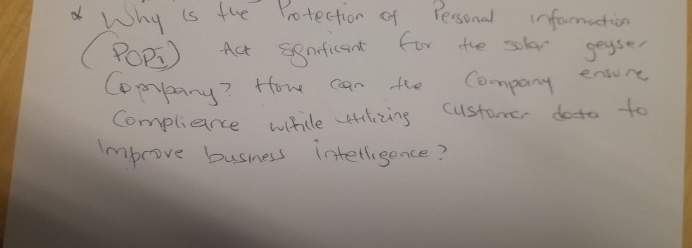 * Why is the Protection of Personal information
(POPI) Act significant for the solar geyser
Company? How can the Company ensure
Compliance while utilizing customer data to
improve business intelligence?